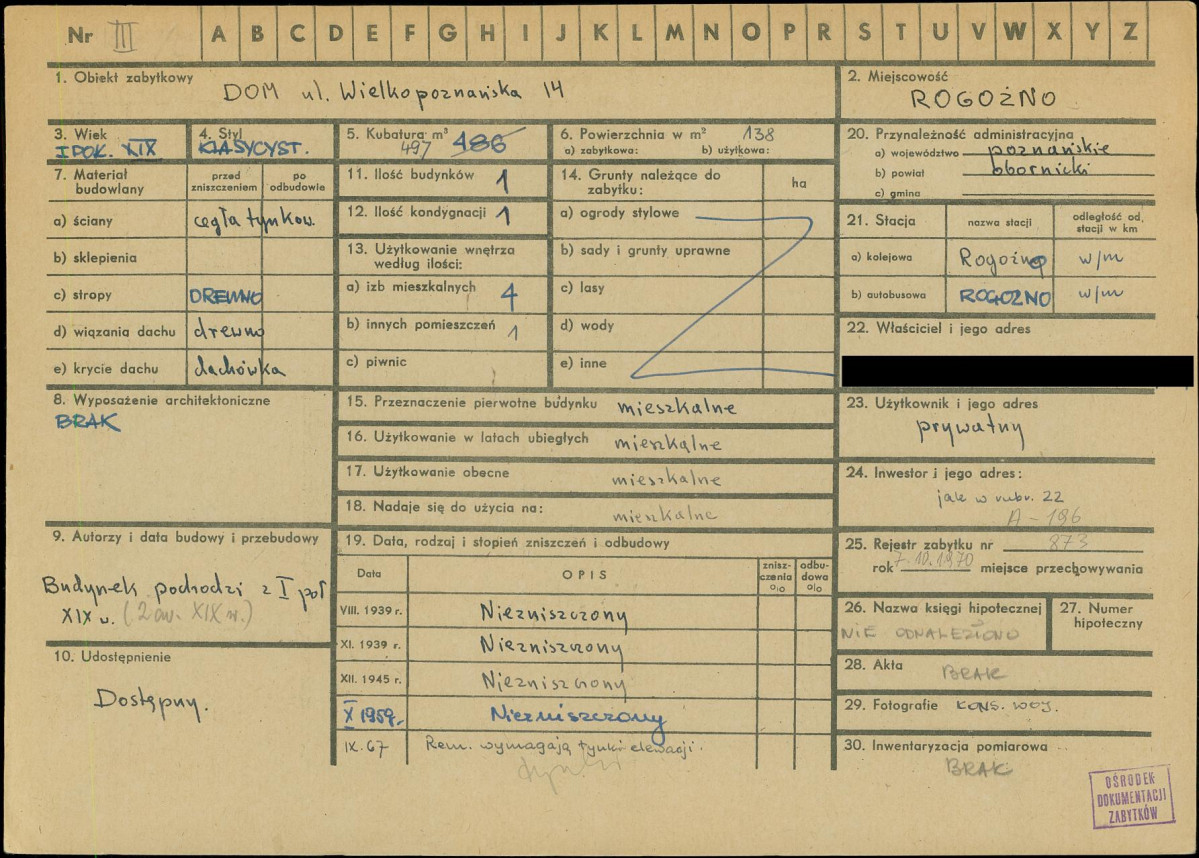 Nr III A B C D E F G H I J K L M N O P R S T U V W X Y Z
1. Obiekt zabytkowy
DOM ul. Wielkopoznańska 14
2. Miejscowość
ROGOŹNO
3. Wiek
I POŁ. XIX
4. Styl
KLASYCYST.
5. Kubatura m³
497 486
6. Powierzchnia w m² 138
a) zabytkowa: b) użytkowa:
20. Przynależność administracyjna
a) województwo poznańskie
b) powiat obornicki
c) gmina
7. Materiał budowlany
przed zniszczeniem
po odbudowie
a) ściany cegła tynkow.
b) sklepienia
c) stropy DREWNO
d) wiązania dachu drewno
e) krycie dachu dachówka
11. Ilość budynków 1
12. Ilość kondygnacji 1
13. Użytkowanie wnętrza
według ilości:
a) izb mieszkalnych 4
b) innych pomieszczeń 1
c) piwnic
14. Grunty należące do
zabytku:
ha
a) ogrody stylowe
b) sady i grunty uprawne
c) lasy
d) wody
e) inne
21. Stacja
nazwa stacji
odległość od.
stacji w km
a) kolejowa Rogoźno w/m
b) autobusowa ROGOZNO w/m
22. Właściciel i jego adres
8. Wyposażenie architektoniczne
BRAK
15. Przeznaczenie pierwotne budynku mieszkalne
16. Użytkowanie w latach ubiegłych mieszkalne
17. Użytkowanie obecne mieszkalne
18. Nadaje się do użycia na: mieszkalne
23. Użytkownik i jego adres
prywatny
24. Inwestor i jego adres:
jak w rubr. 22
A-186
25. Rejestr zabytku nr 873
rok 7.10.1970 miejsce przechowywania
9. Autorzy i data budowy i przebudowy
Budynek pochodzi z I poł
XIX w. (2 ćw. XIX w.)
10. Udostępnienie
Dostępny.
19. Data, rodzaj i stopień zniszczeń i odbudowy
Data
OPIS
znisz-
czenia
%
odbu-
dowa
%
VIII. 1939 r. Niezniszczony
XI. 1939 r. Niezniszczony
XII. 1945 r. Niezniszczony
X 1959r. Niezniszczony
IX.67 Rem. wymagają tynki elewacji.
26. Nazwa księgi hipotecznej
NIE ODNALEZIONO
27. Numer
hipoteczny
28. Akta
BRAK
29. Fotografie KONS. WOJ.
30. Inwentaryzacja pomiarowa
BRAK
OŚRODEK
DOKUMENTACJI
ZABYTKÓW